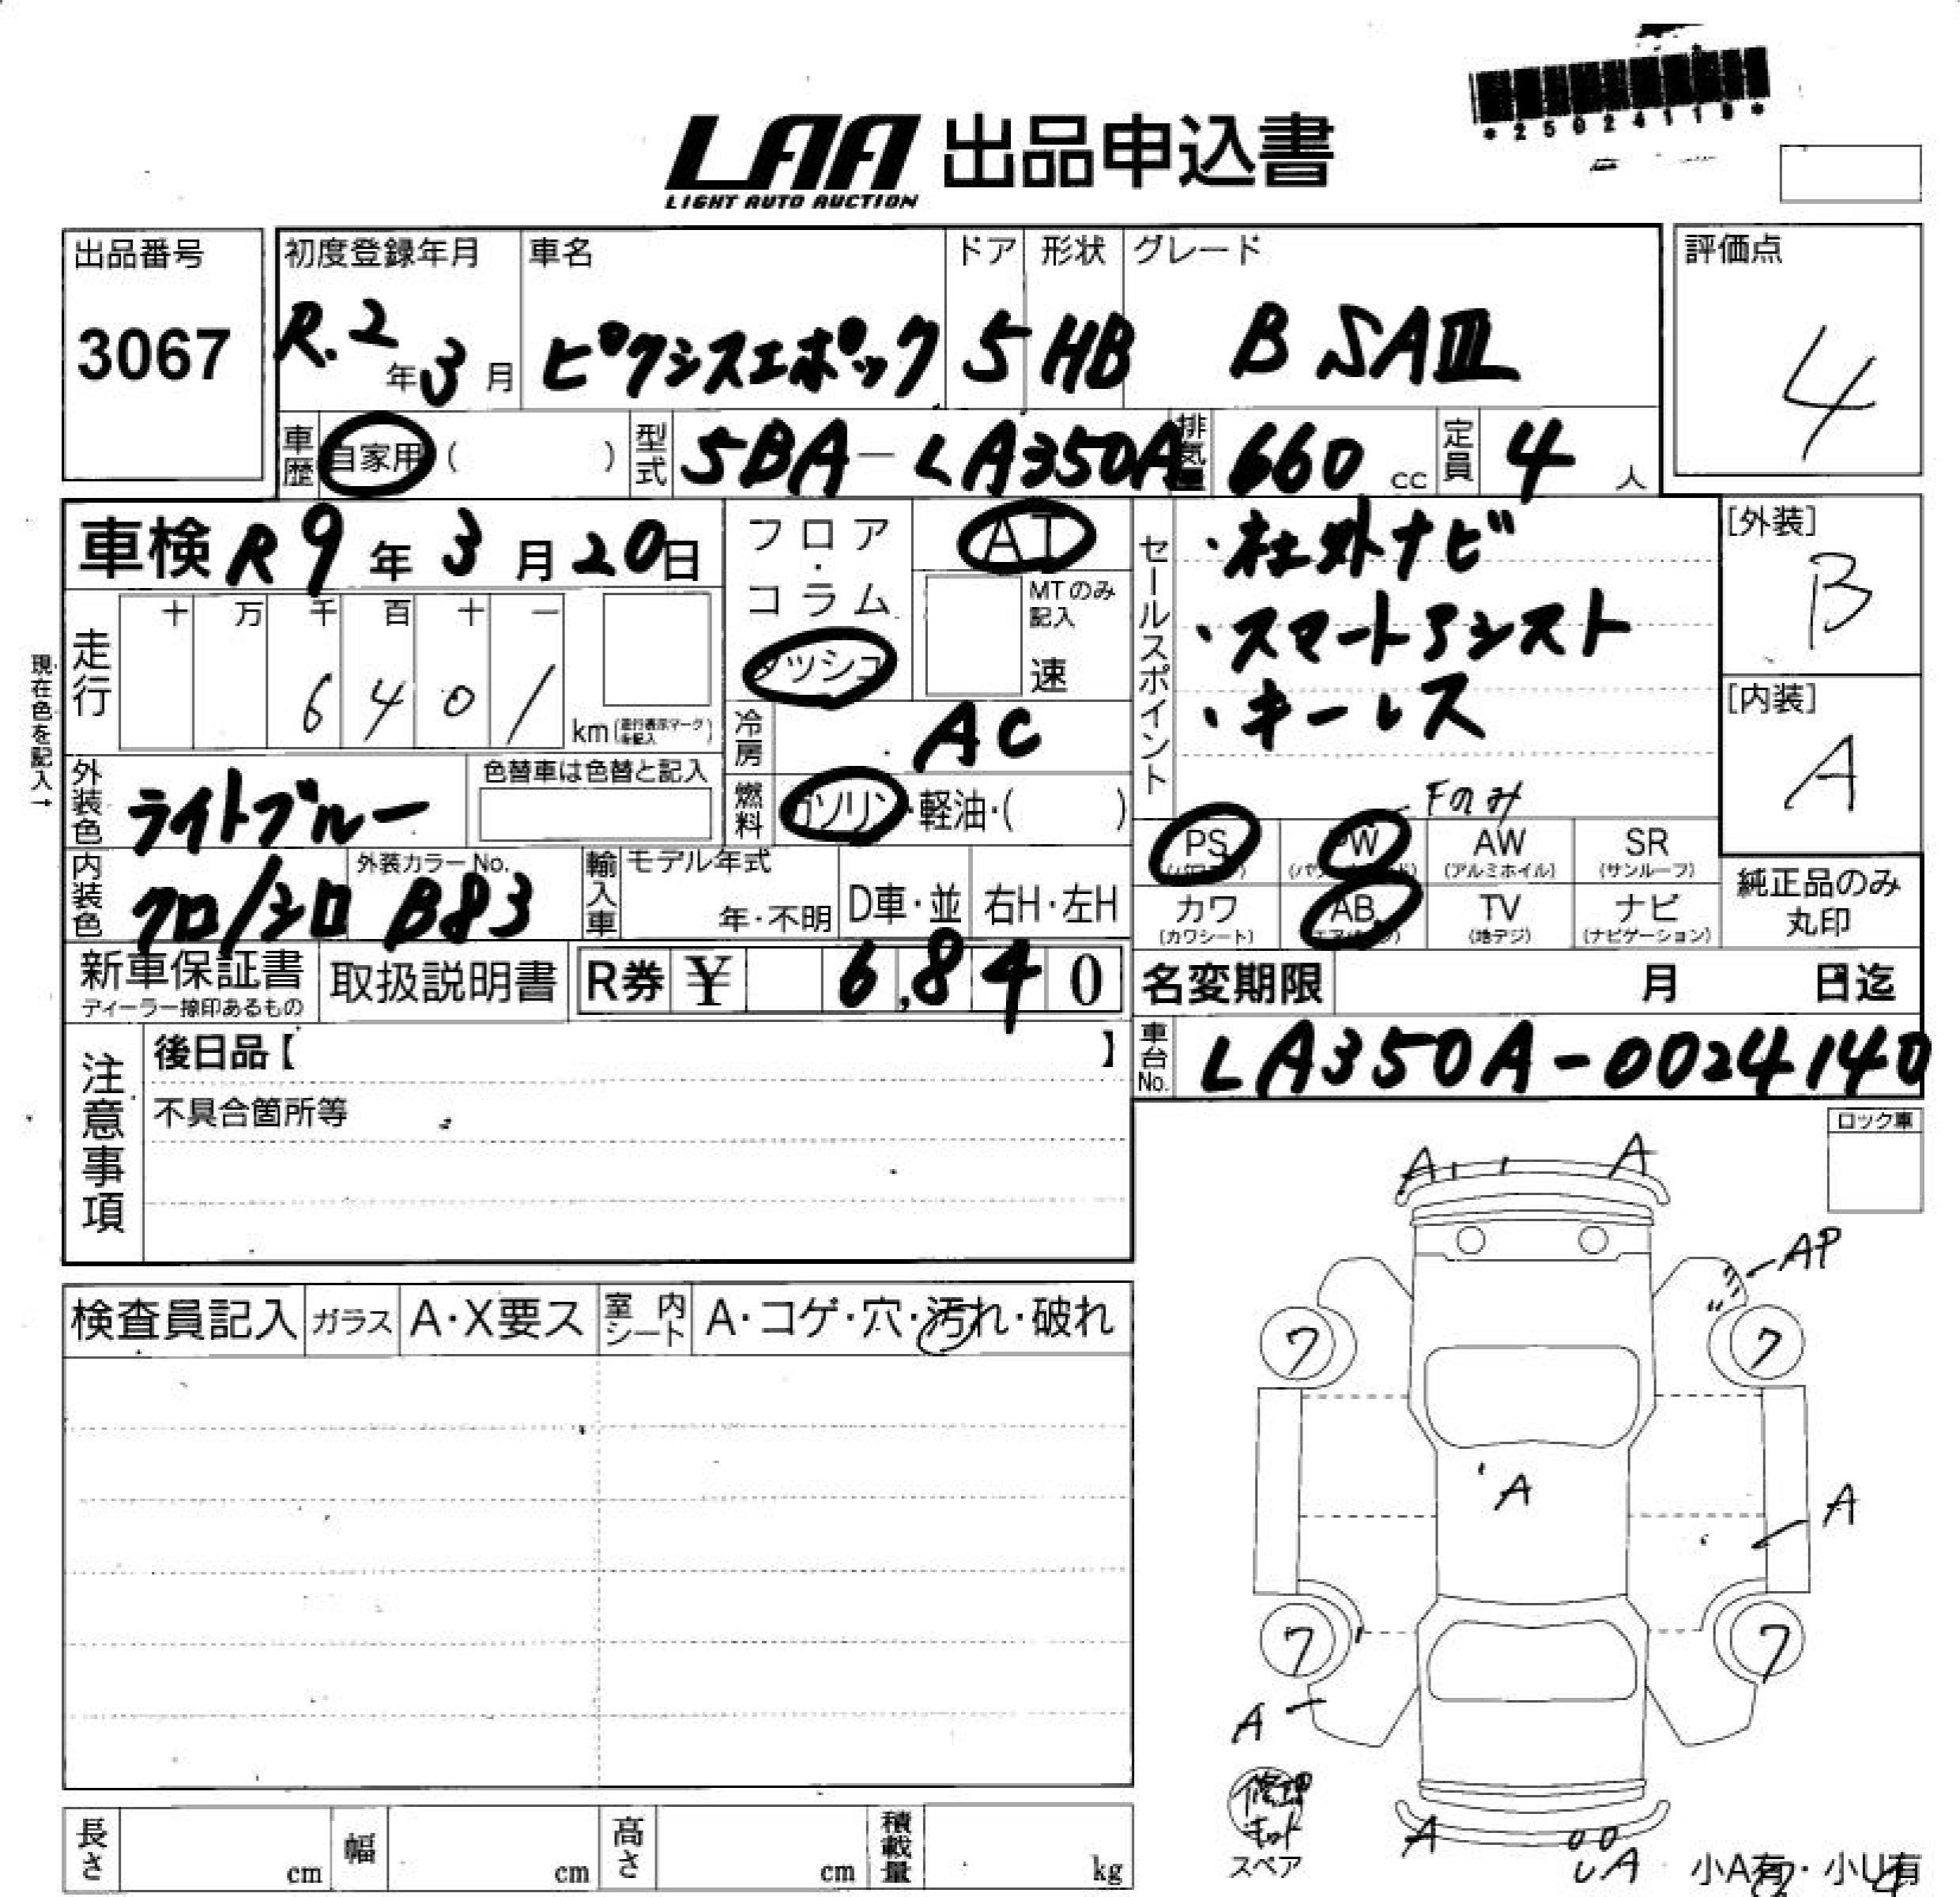 *25024119*
LAA 出品申込書
LIGHT AUTO AUCTION
出品番号
3067
初度登録年月
R.2年3月
車名
ピクシスエポック
ドア
5
形状
HB
グレード
B SAⅢ
評価点
4
車歴 自家用 ( )
型式 5BA-LA350A
排気量 660 cc
定員 4 人
車検 R9年3月20日
フロア・コラム
ダッシュ
AT
MTのみ記入
速
セールスポイント
・社外ナビ
・スマートアシスト
・キーレス
[外装]
B
[内装]
A
現在色を記入→
走行
十 万 千 百 十 一
6 4 0 1
km (走行表示マークを記入)
冷房 AC
外装色 ライトブルー
色替車は色替と記入
燃料 ガソリン・軽油・( )
Fのみ
PS
PW
AW (アルミホイル)
SR (サンルーフ)
カワ (カワシート)
AB
TV (地デジ)
ナビ (ナビゲーション)
純正品のみ丸印
内装色 クロ/シロ
外装カラーNo.
B83
輸入車
モデル年式
年・不明
D車・並
右H・左H
新車保証書
ディーラー捺印あるもの
取扱説明書
R券 ¥ 6,840
名変期限 月 日迄
車台No. LA350A-0024140
注意事項
後日品【 】
不具合箇所等
ロック車
A
A
AP
検査員記入
ガラス A・X要ス
室内シート A・コゲ・穴・汚れ・破れ
7
7
A
A
7
7
A
修理キット
スペア
A
UA
小A有・小U有
長さ cm
幅 cm
高さ cm
積載量 kg